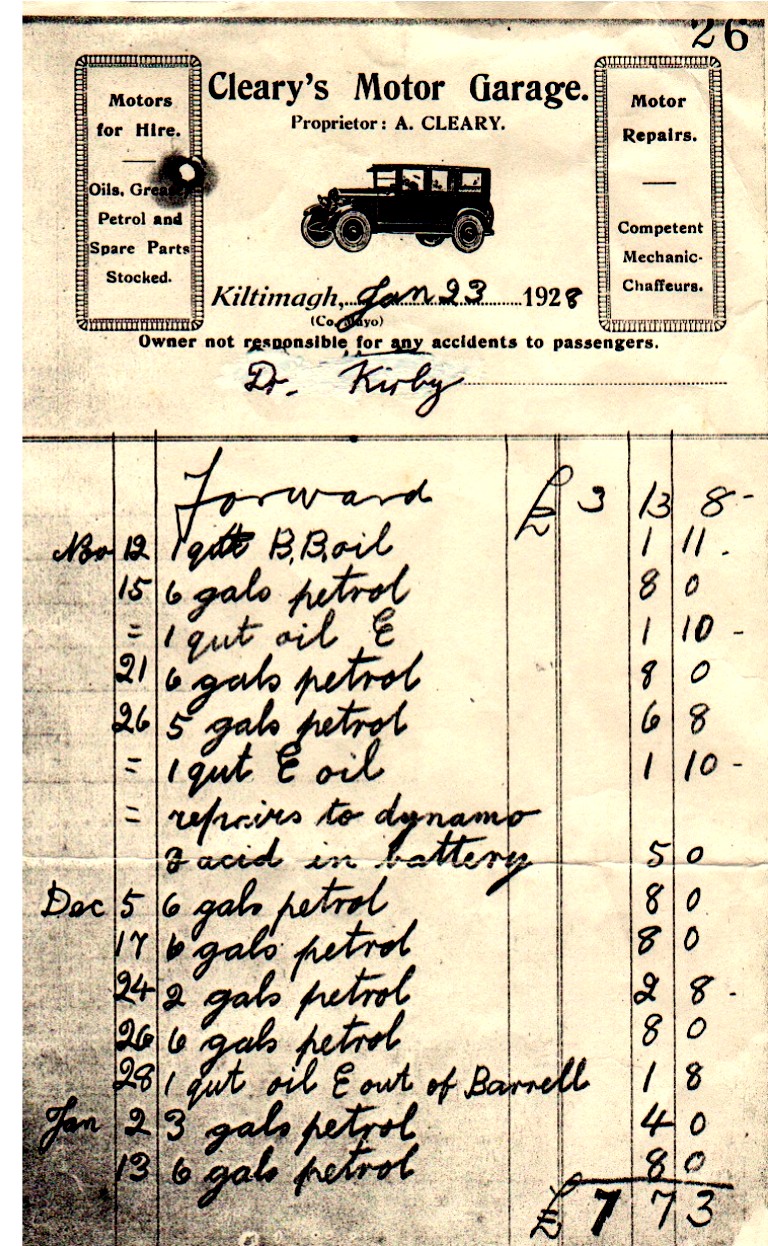 26
Cleary's Motor Garage.
Proprietor: A. CLEARY.
Motors
for Hire.
Oils, Grease
Petrol and
Spare Parts
Stocked.
Motor
Repairs.
Competent
Mechanic-
Chaffeurs.
Kiltimagh, Jan 23 1928
(Co. Mayo)
Owner not responsible for any accidents to passengers.
Dr. Kirby
Forward £ 3 13 8-
Nov 12 1 qut B.B. oil 1 11.
15 6 gals petrol 8 0
= 1 qut oil E 1 10-
21 6 gals petrol 8 0
26 5 gals petrol 6 8
= 1 qut E oil 1 10-
= repairs to dynamo
& acid in battery 5 0
Dec 5 6 gals petrol 8 0
17 6 gals petrol 8 0
24 2 gals petrol 2 8-
26 6 gals petrol 8 0
28 1 qut oil E out of Barrell 1 8
Jan 2 3 gals petrol 4 0
13 6 gals petrol 8 0
£ 7 7 3